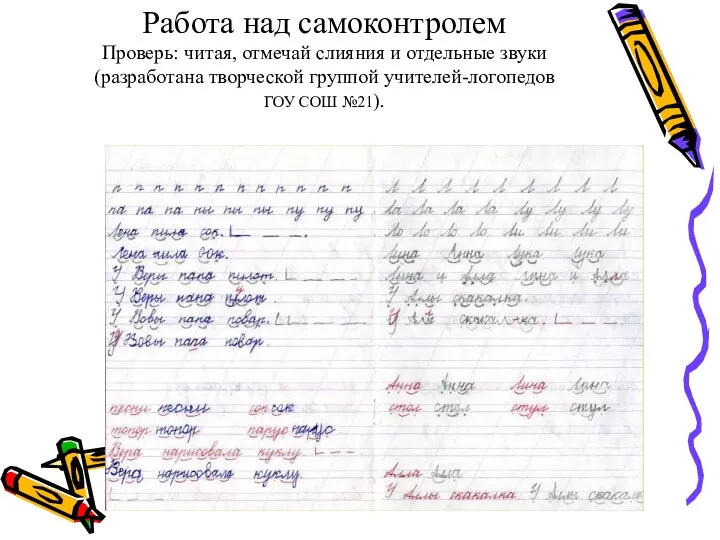 Работа над самоконтролем
Проверь: читая, отмечай слияния и отдельные звуки
(разработана творческой группой учителей-логопедов
ГОУ СОШ №21).
п п п п п п п п п п п п
па па па пы пы пы пу пу пу
Лена пила сок.
Лена пила сок.
У Веры папа пилот.
У Веры папа пилот.
У Вовы папа повар.
У Вовы папа повар.
песни песни сок сок
топор топор парус парус
Вера нарисовала куклу.
Вера нарисовала куклу.
Л Л Л Л Л Л Л Л Л
Ла Ла Ла Ла Лу Лу Лу Лу
Ло Ло Ло Ло Ли Ли Ли Ли
Лина Лина Лука Лука
Лина и Алла Лина и Алла
У Аллы скакалка.
У скакалка.
Анна Анна Лина Лина
стол стол стул стул
Алла Алла
У Аллы скакалка. У Аллы